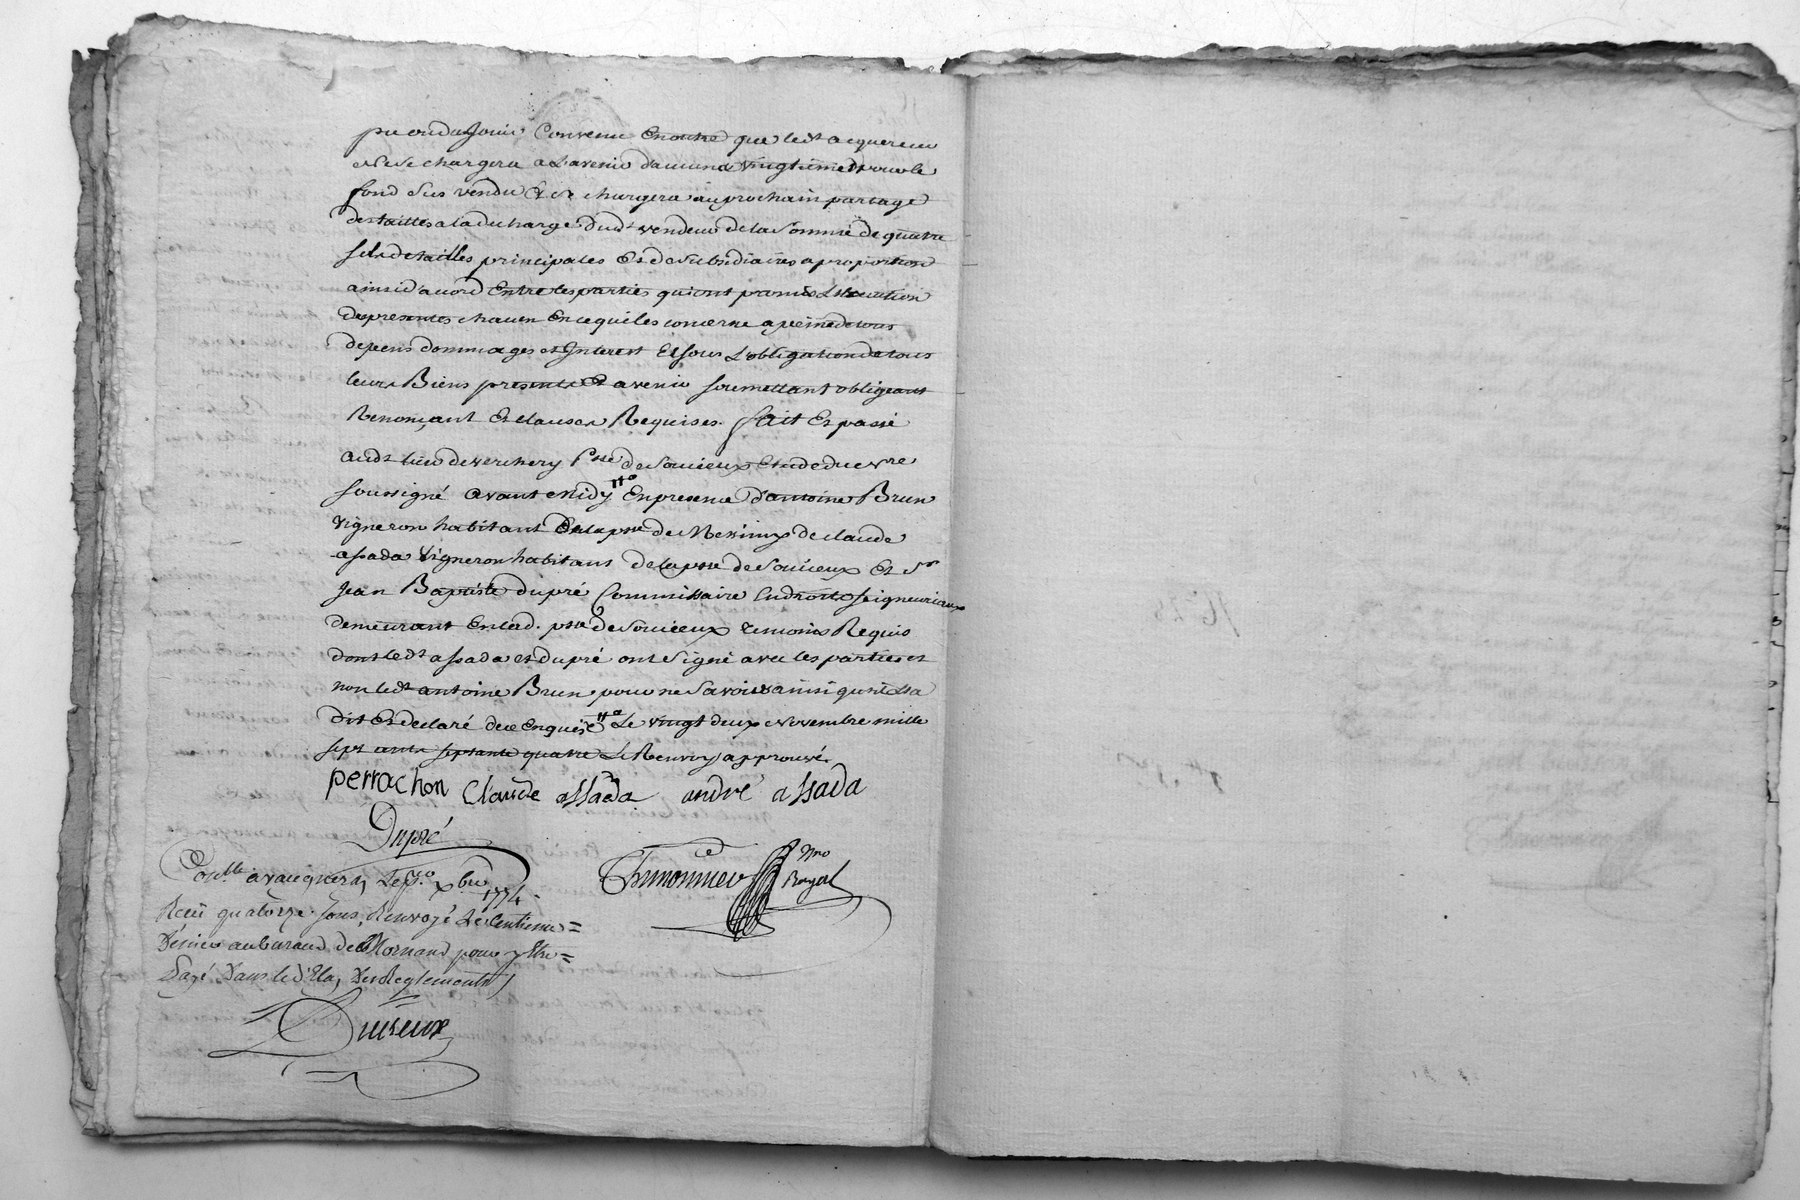 pu ou du Jouir Convenu En outre que led.t acquereur
ne se chargera a L'avenir d'aucuns vingtiemes pour le
fond sus vendu Et se chargera au prochain partage
des tailles a la ducharge dud.t vendeur de la Somme de quatre
sols de tailles principales Et de Subsidiaires a proportion
ainsi d'acord Entre les parties qui ont promis L'Execution
des presentes chacun En ce qui les concerne a peine de tous
depens dommages et Interest Et sous L'obligation de tous
leurs Biens presents Et avenir soumettant obligeant
Renonçant Et clauses Requises. fait Et passé
aud.t lieu de verchery P.sse de Soucieux
soussigné avant Midy En presence d'antoine Brun
vigneron habitant De la p.sse de Messimy de claude
assada vigneron habitant de la p.sse de Soucieux Et S.r
Jean Baptiste dupré Commissaire En droits seigneuriaux
demeurant En lad. p.sse de Soucieux temoins Requis
dont led.t assada et dupré ont Signé avec les parties et
non led.t antoine Brun pour ne Savoir ainsi qu'il L'a
dit Et declaré de ce Enquis Le vingt deux Novembre mille
sept cents septante quatre Le Renvoy approuvé.
perrachon Claude assada andré assada
Dupré
Con.lle a vaugneray Le p.r x.bre 1774
Thimonnier N.re Royal
Reçu quatorze sous, Renvoyé Le Centieme =
Dénier au bureau de Mornand pour y Etre =
Payé Dans le délay Des Reglements